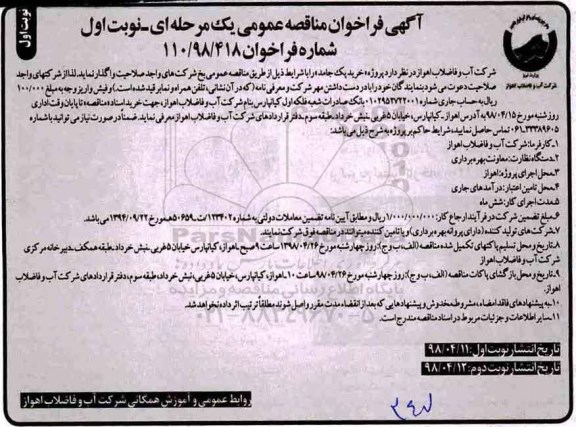 نوبت اول
آگهی فراخوان مناقصه عمومی یک مرحله ای - نوبت اول
شماره فراخوان ۱۱۰/۹۸/۴۱۸
وزارت نیرو
شرکت آب و فاضلاب اهواز
شرکت آب و فاضلاب اهواز در نظر دارد پروژه «خرید یک جامد» را با شرایط ذیل از طریق مناقصه عمومی یخ شرکت های واجد صلاحیت واگذار نماید. لذا از شرکتهای واجد
صلاحیت دعوت می شود با نمایندگان خود با در دست داشتن مهر شرکت و معرفی نامه (که در آن نشانی، تلفن همراه و نمابر قید شده است) و فیش واریز وجه به مبلغ ۱۰۰/۰۰۰
ریال به حساب جاری شماره ۰۱۰۲۹۵۳۷۲۲۰۰۱ بانک صادرات شعبه فلکه اول کیانپارس بنام شرکت آب و فاضلاب اهواز، جهت خرید اسناد «مناقصه» تا پایان وقت اداری
روز شنبه مورخ ۹۸/۰۴/۱۵ به آدرس اهواز - کیانپارس، خیابان ۵ غربی - نبش خرداد - طبقه سوم - دفتر قراردادهای شرکت آب و فاضلاب اهواز معرفی نمایند. ضمناً در صورت نیاز می توانید با شماره
۰۶۱۳۳۳۸۹۶۰۵ تماس حاصل نمایید، شرایط حاکم بر پروژه به شرح ذیل می باشد:
۱- کارفرما: شرکت آب و فاضلاب اهواز
۲- دستگاه نظارت: معاونت بهره برداری
۳- محل اجرای پروژه: اهواز
۴- محل تامین اعتبار: درآمدهای جاری
۵- مدت اجرای کار: شش ماه
۶- مبلغ تضمین شرکت در فرآیند ارجاع کار: ۱/۰۰۰/۰۰۰/۰۰۰ ریال و مطابق آیین نامه تضمین معاملات دولتی به شماره ۱۲۳۴۰۲/ت۵۰۶۵۹ه مورخ ۱۳۹۴/۰۹/۲۲ می باشد.
۷- شرکت های تولید کننده (دارای پروانه بهره برداری) و یا تامین کننده میتوانند در مناقصه فوق شرکت نمایند.
۸- تاریخ و محل تسلیم پاکتهای تکمیل شده مناقصه (الف، ب و ج): روز چهارشنبه مورخ ۱۳۹۸/۰۴/۲۶ ساعت ۹ صبح - اهواز، کیانپارس خیابان ۵ غربی، نبش خرداد، طبقه همکف - دبیرخانه مرکزی
۹- تاریخ و محل بازگشای پاکات مناقصه (الف، ب و ج): روز چهارشنبه مورخ ۹۸/۰۴/۲۶ ساعت ۱۰ - اهواز، کیانپارس، خیابان ۵ غربی، نبش خرداد، طبقه سوم، دفتر قراردادهای شرکت آب و فاضلاب
اهواز.
۱۰- به پیشنهادهای فاقد امضاء، مشروط، مخدوش و پیشنهادهایی که بعد از انقضاء مدت مقرر واصل شوند مطلقاً ترتیب اثر داده نخواهد شد.
۱۱- سایر اطلاعات و جزئیات مربوط در اسناد مناقصه مندرج است.
تاریخ انتشار نوبت اول: ۹۸/۰۴/۱۱
تاریخ انتشار نوبت دوم: ۹۸/۰۴/۱۲
روابط عمومی و آموزش همگانی شرکت آب و فاضلاب اهواز